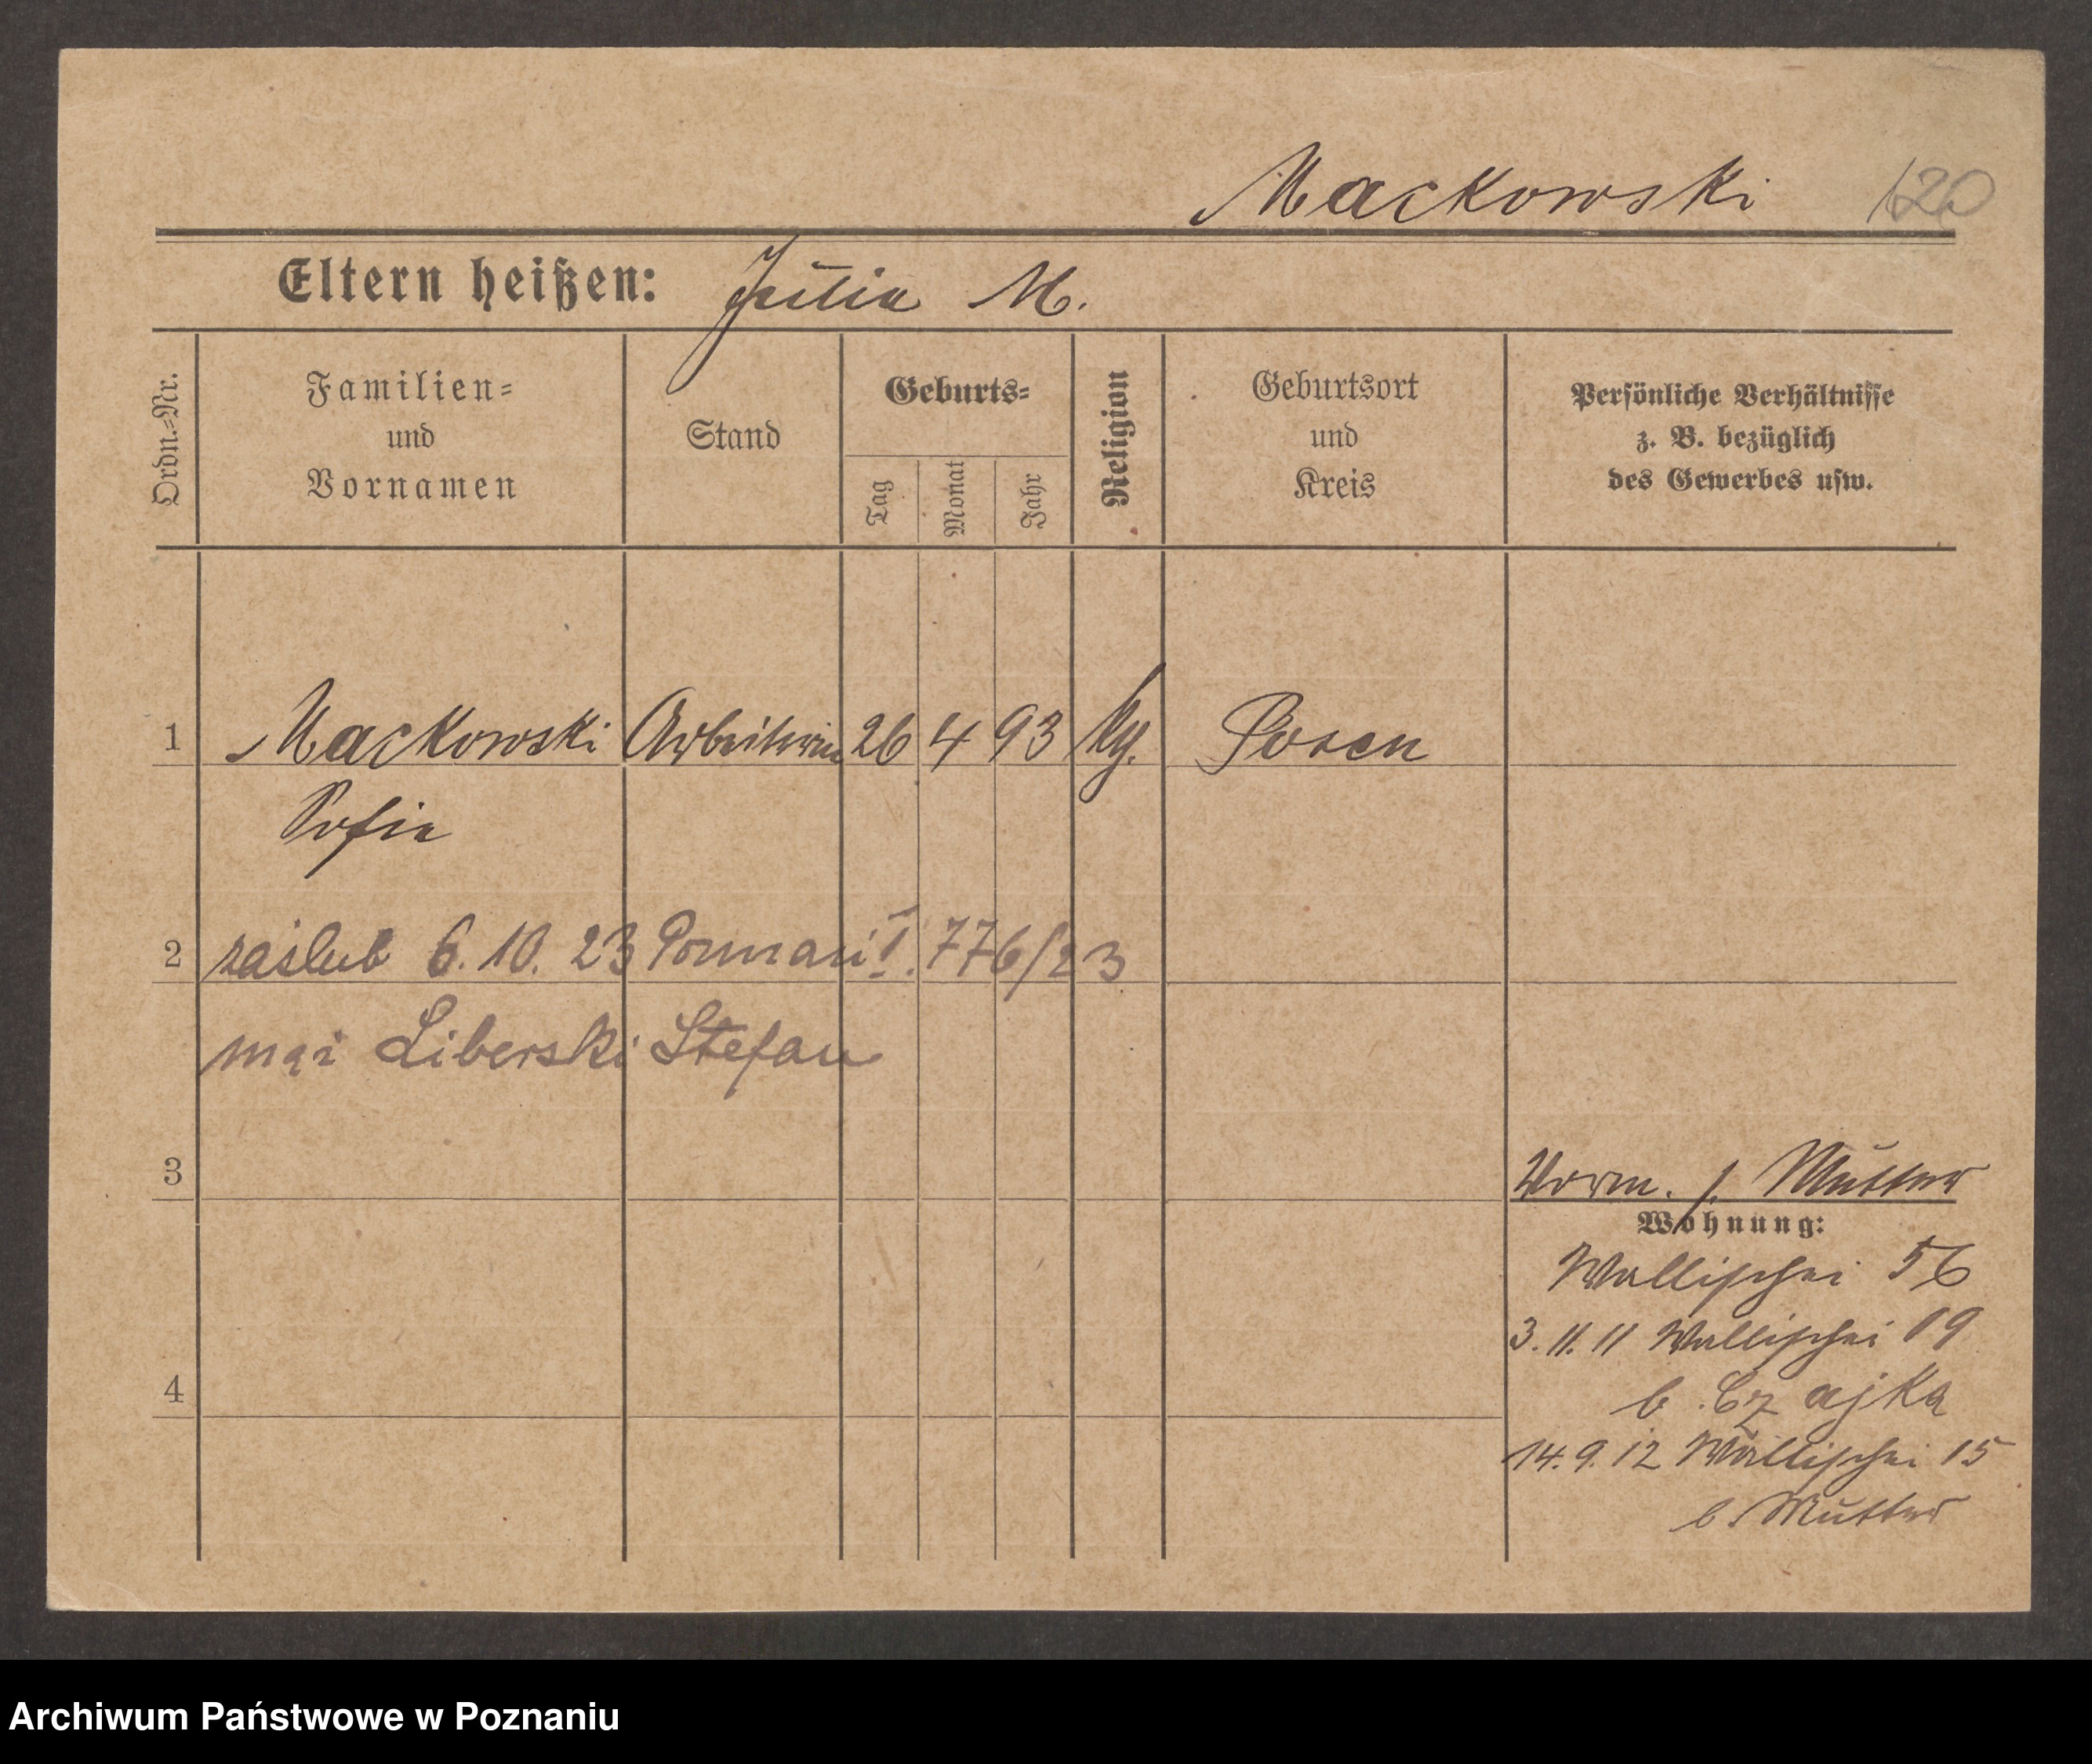 Mackowski 120
Eltern heißen: Julia M.
Ordn.=Nr.
Familien=
und
Vornamen
Stand
Geburts=
Tag
Monat
Jahr
Religion
Geburtsort
und
Kreis
Persönliche Verhältnisse
z. B. bezüglich
des Gewerbes usw.
1 Mackowski Arbeiterin 26 4 93 Posen
Sofia
2 zaślub 6. 10. 23 Poznań I. 776/23
mąż Liberski Stefan
3 Vorm. s. Mutter
Wohnung:
Wallischei 56
3. 11. 11 Wallischei 19
4 b. Czajka
14. 9. 12 Wallischei 15
b. Mutter
Archiwum Państwowe w Poznaniu